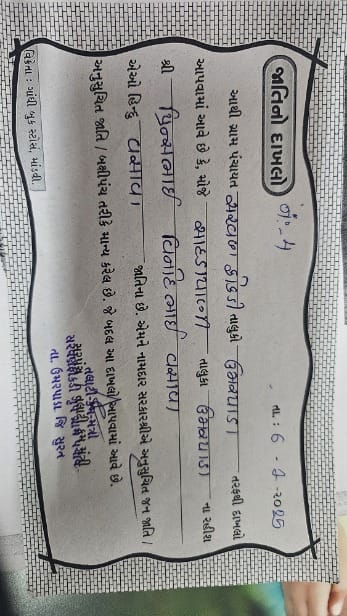 જાતિનો દાખલો
નં.-4
તા : 6 - 1 -૨૦25
આથી ગ્રામ પંચાયત તાલુકો ઉમરપાડા તરફથી દાખલો
આપવામાં આવે છે કે, મોજે તાલુકા ઉમરપાડા ના રહીશ
શ્રી પ્રિન્સભાઈ વિનોદભાઈ વસાવા
એઓ હિન્દુ વસાવા જાતિના છે. એમને નામદાર સરકારશ્રીએ અનુસુચિત જન જાતિ /
અનુસુચિત જાતિ / બક્ષીપંચ તરીકે માન્ય કરેલ છે. જે બદલ આ દાખલો આપવામાં આવે છે.
તા. ઉમરપાડા જિ સુરત
વિક્રેતા : ગાંધી બુક સ્ટોર્સ, માંડવી.